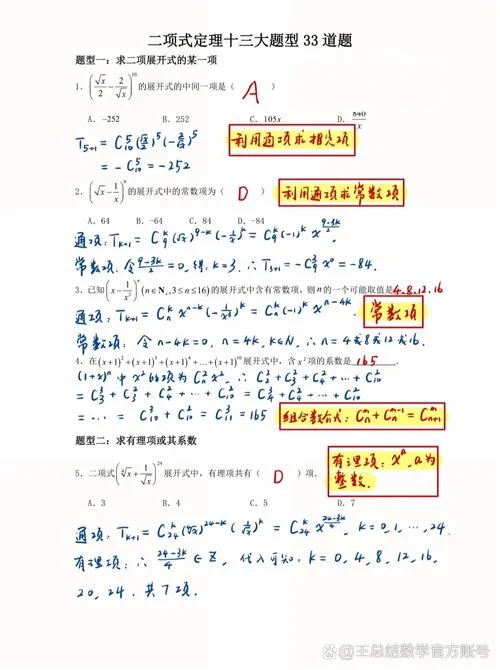 二项式定理十三大题型 33 道题
题型一：求二项展开式的某一项
1. (√x/2 - 2/√x)^10 的展开式的中间一项是（ A ）
A. -252 B. 252 C. 105x D. 840/x
T5+1 = C_10^5 (√x/2)^5 (-2/√x)^5
= -C_10^5 = -252
利用通项求相关项
2. (√x - 1/x)^9 的展开式中的常数项为（ D ）
利用通项求常数项
A. 64 B. -64 C. 84 D. -84
通项：Tk+1 = C_9^k (√x)^(9-k) (-1/x)^k = C_9^k (-1)^k x^((9-3k)/2).
常数项：令 (9-3k)/2 = 0, 得, k=3. ∴ T3+1 = -C_9^3 x^0 = -84.
3. 已知 (x - 1/x^3)^n (n∈N, 3≤n≤16) 的展开式中含有常数项，则 n 的一个可能取值是 4,8,12,16
通项：Tk+1 = C_n^k x^(n-k) (-1/x^3)^k = C_n^k (-1)^k x^(n-4k).
常数项
常数项：令 n-4k=0, n=4k, k∈N, ∴ n=4或8或12或16.
4. 在 (x+1)^2+(x+1)^3+(x+1)^4+…+(x+1)^10 展开式中，含 x^2 项的系数是 165 .
(1+x)^n 中 x^2 的项为 C_n^2 x^2, ∴ C_2^2 + C_3^2 + C_4^2 + ··· + C_10^2
= C_3^3 + C_3^2 + C_4^2 + ··· + C_10^2 = C_4^3 + C_4^2 + ··· + C_10^2
= ··· = C_10^3 + C_10^2 = C_11^3 = 165
组合数公式：C_n^m + C_n^(m-1) = C_(n+1)^m
题型二：求有理项或其系数
有理项：x^a, a为
整数.
5. 二项式 (∜x + 1/√x)^24 展开式中，有理项共有（ D ）项.
A. 3 B. 4 C. 5 D. 7
通项：Tk+1 = C_24^k (∜x)^(24-k) (1/√x)^k = C_24^k x^((24-3k)/4), k=0,1,···,24.
有理项：∴ (24-3k)/4 ∈ Z, 代入可知, k=0,4,8,12,16,
20,24. 共7项.
王总结数学官方账号